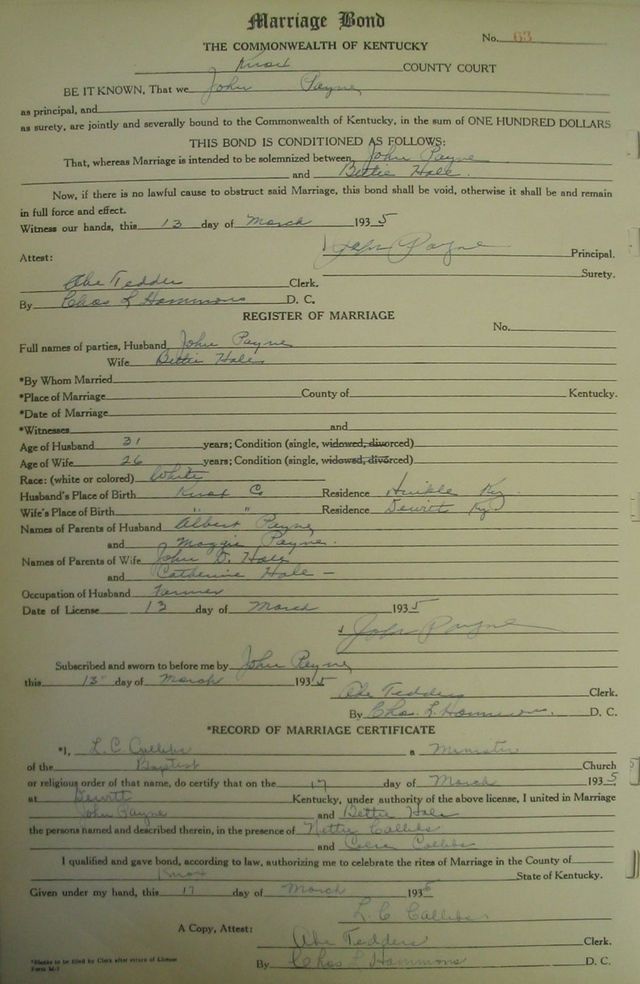 Marriage Bond
No. 63
THE COMMONWEALTH OF KENTUCKY
Knox COUNTY COURT
BE IT KNOWN, That we John Payne
as principal, and
as surety, are jointly and severally bound to the Commonwealth of Kentucky, in the sum of ONE HUNDRED DOLLARS
THIS BOND IS CONDITIONED AS FOLLOWS:
That, whereas Marriage is intended to be solemnized between John Payne
and Bettie Hale.
Now, if there is no lawful cause to obstruct said Marriage, this bond shall be void, otherwise it shall be and remain
in full force and effect.
Witness our hands, this 13 day of March 1935
John Payne Principal.
Attest: Surety.
Abe Tedders Clerk.
By Chas L Hammons D. C.
REGISTER OF MARRIAGE
No.
Full names of parties, Husband John Payne
Wife Bettie Hale
*By Whom Married
*Place of Marriage County of Kentucky.
*Date of Marriage
*Witnesses and
Age of Husband 31 years; Condition (single, widowed, divorced)
Age of Wife 26 years; Condition (single, widowed, divorced)
Race: (white or colored) White
Husband's Place of Birth Knox C. Residence Hinkle Ky
Wife's Place of Birth " " Residence Dewitt Ky
Names of Parents of Husband Albert Payne
and Maggie Payne.
Names of Parents of Wife John D. Hale
and Catherine Hale —
Occupation of Husband Farmer
Date of License 13 day of March 1935
John Payne
Subscribed and sworn to before me by John Payne
this 13" day of March 1935
Abe Tedders Clerk.
By Chas. L. Hammons. D. C.
*RECORD OF MARRIAGE CERTIFICATE
*I, L. C. Callibs a Minister
of the Baptist Church
or religious order of that name, do certify that on the 17 day of March 1935
at Dewitt Kentucky, under authority of the above license, I united in Marriage
John Payne and Bettie Hale
the persons named and described therein, in the presence of Nettie Callibs
and Callibs
I qualified and gave bond, according to law, authorizing me to celebrate the rites of Marriage in the County of
Knox State of Kentucky.
Given under my hand, this 17 day of March 193
L. C. Callibs
A Copy, Attest: Abe Tedders Clerk.
By Chas L Hammons D. C.
*Blanks to be filled by Clerk after return of License
Form M-1